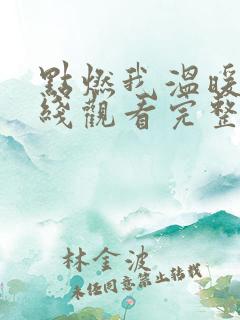 點燃我 溫暖
綫觀看完整
林金波
未经同意禁止转载